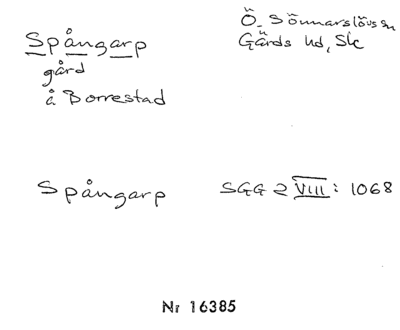 Spångarp
gård
å Borrestad
Ö. Sönnarslövs sn
Gärds hd, Sk
Spångarp
SGG 2 VIII: 1068
Nr 16385